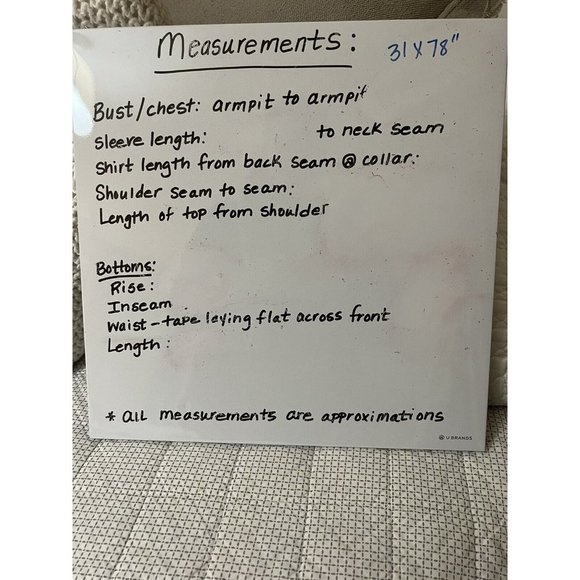 Measurements: 31 x 78"
Bust/chest: armpit to armpit
Sleeve length: to neck seam
Shirt length from back seam @ collar:
Shoulder seam to seam:
Length of top from shoulder
Bottoms:
Rise:
Inseam
Waist-tape laying flat across front
Length:
* all measurements are approximations
U BRANDS